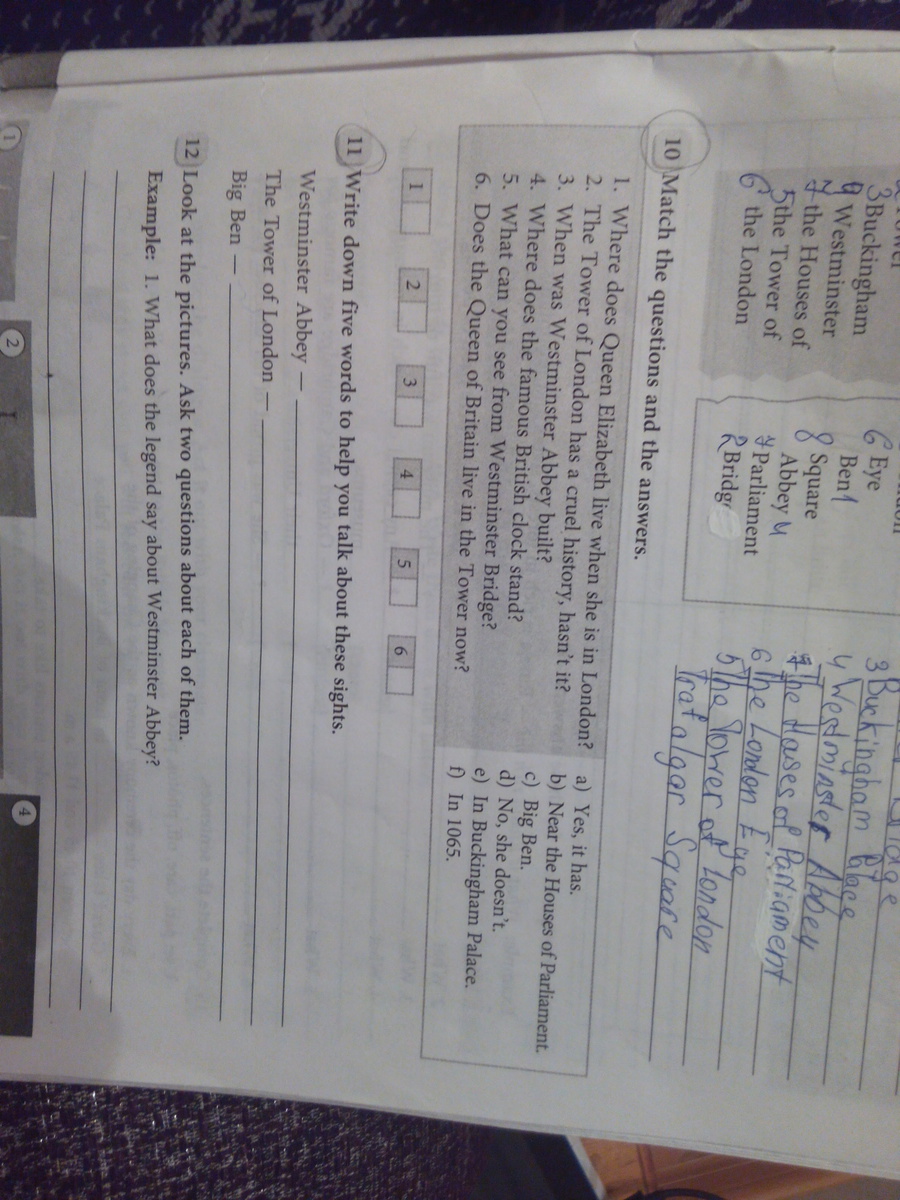 3 Buckingham
4 Westminster
7 the Houses of
5 the Tower of
6 the London
6 Eye
Ben 1
8 Square
Abbey 4
7 Parliament
2 Bridge
3 Buckingham Place
4 Westminster Abbey
7 The Hauses of Parliament
6 The London Eye
5 The Tower of London
Trafalgar Square
10 Match the questions and the answers.
1. Where does Queen Elizabeth live when she is in London?
2. The Tower of London has a cruel history, hasn't it?
3. When was Westminster Abbey built?
4. Where does the famous British clock stand?
5. What can you see from Westminster Bridge?
6. Does the Queen of Britain live in the Tower now?
a) Yes, it has.
b) Near the Houses of Parliament.
c) Big Ben.
d) No, she doesn't.
e) In Buckingham Palace.
f) In 1065.
1 2 3 4 5 6
11 Write down five words to help you talk about these sights.
Westminster Abbey —
The Tower of London —
Big Ben —
12 Look at the pictures. Ask two questions about each of them.
Example: 1. What does the legend say about Westminster Abbey?
1
2
4